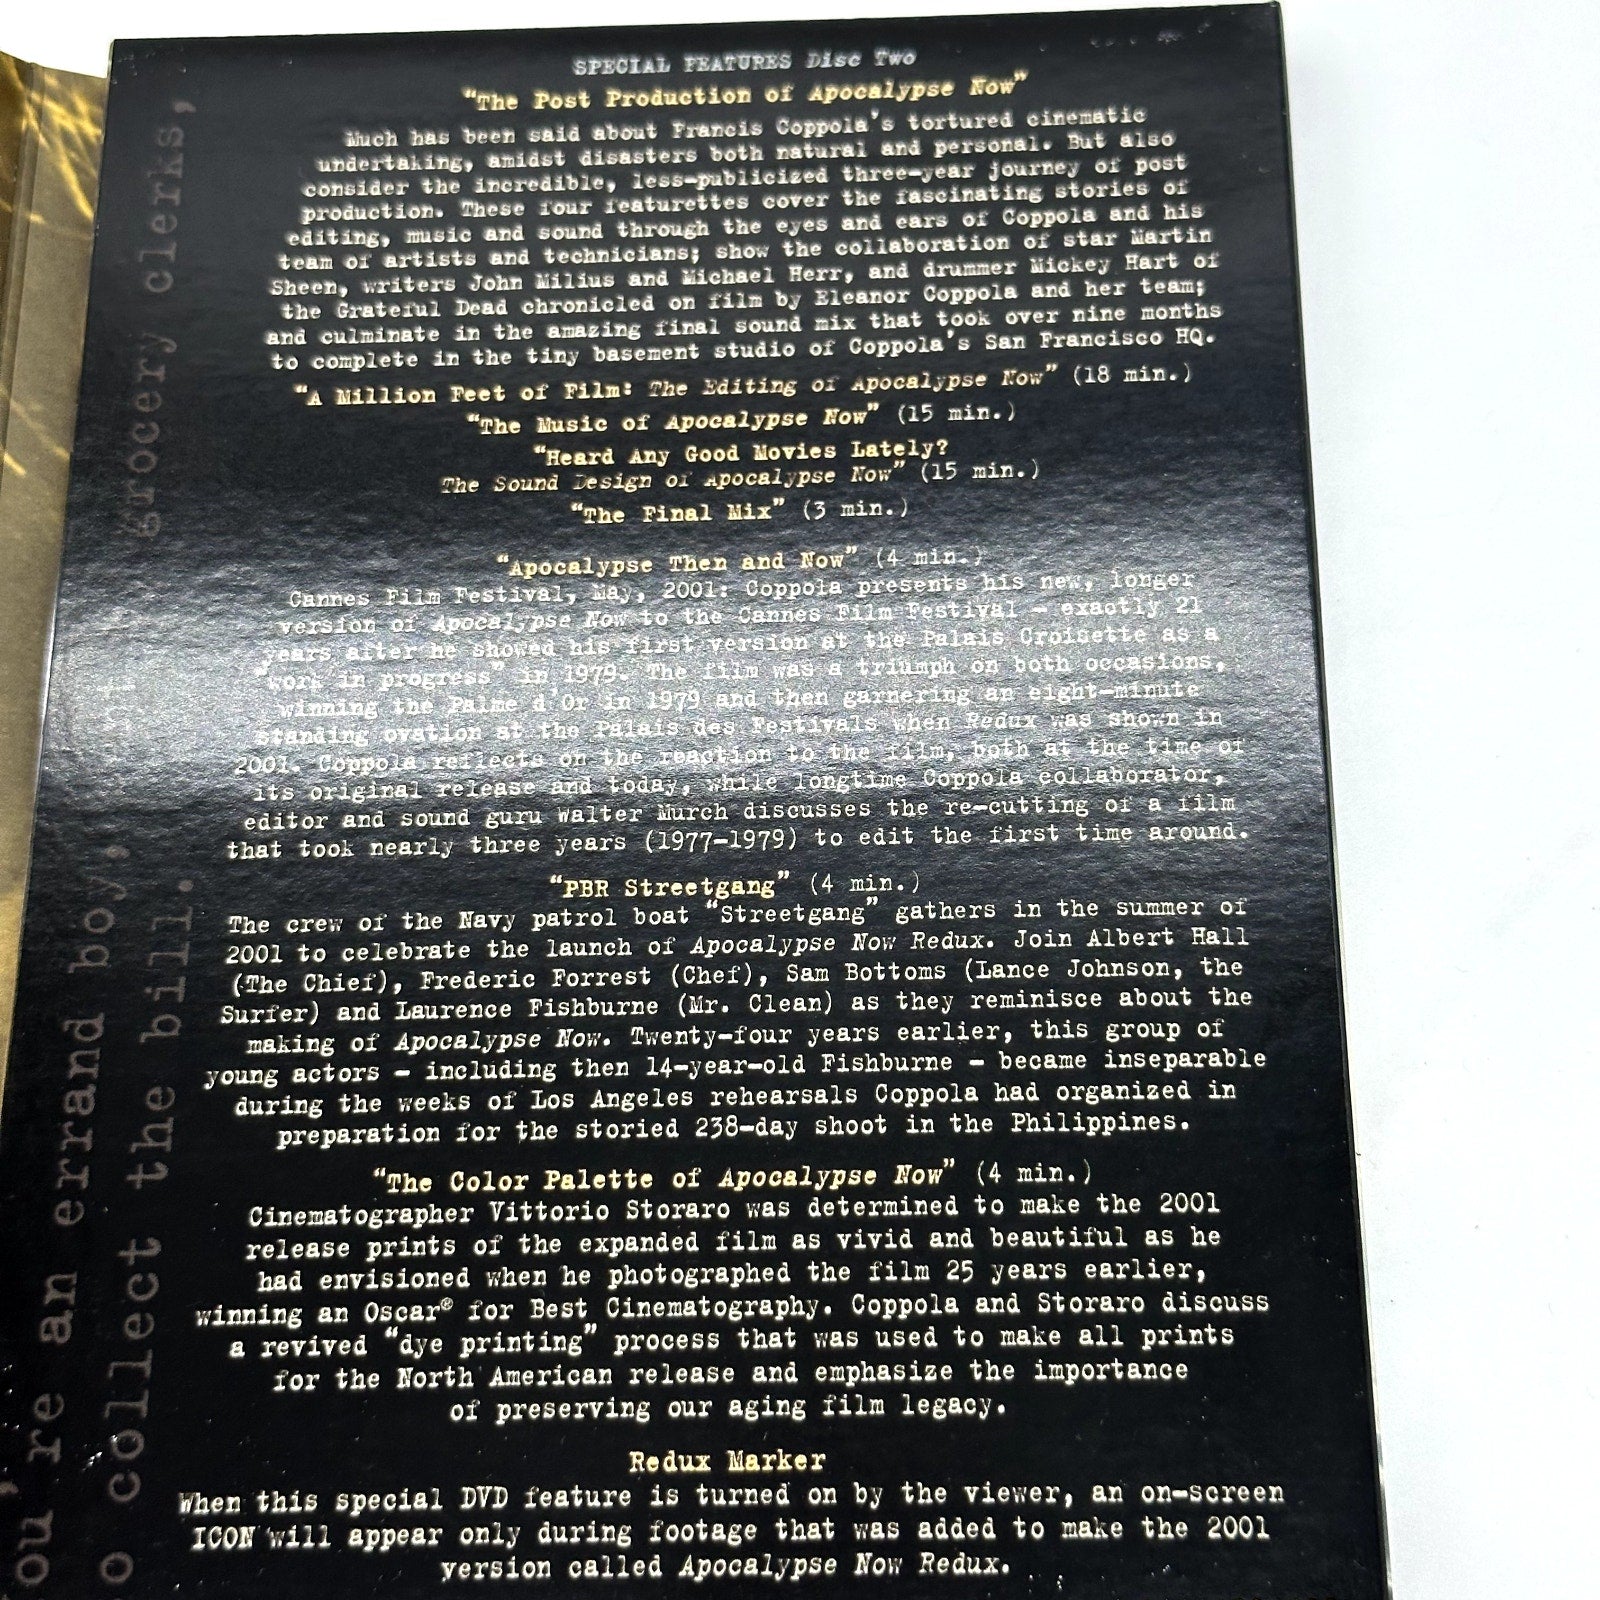 SPECIAL FEATURES Disc Two
“The Post Production of Apocalypse Now”
Much has been said about Francis Coppola's tortured cinematic
undertaking, amidst disasters both natural and personal. But also
consider the incredible, less-publicized three-year journey of post
production. These four featurettes cover the fascinating stories of
editing, music and sound through the eyes and ears of Coppola and his
team of artists and technicians; show the collaboration of star Martin
Sheen, writers John Milius and Michael Herr, and drummer Mickey Hart of
the Grateful Dead chronicled on film by Eleanor Coppola and her team;
and culminate in the amazing final sound mix that took over nine months
to complete in the tiny basement studio of Coppola's San Francisco HQ.
“A Million Feet of Film: The Editing of Apocalypse Now” (18 min.)
“The Music of Apocalypse Now” (15 min.)
“Heard Any Good Movies Lately?
The Sound Design of Apocalypse Now” (15 min.)
“The Final Mix” (3 min.)
“Apocalypse Then and Now” (4 min.)
Cannes Film Festival, May, 2001: Coppola presents his new, longer
version of Apocalypse Now to the Cannes Film Festival – exactly 21
years after he showed his first version at the Palais Croisette as a
“work in progress” in 1979. The film was a triumph on both occasions,
winning the Palme d'Or in 1979 and then garnering an eight-minute
standing ovation at the Palais des Festivals when Redux was shown in
2001. Coppola reflects on the reaction to the film, both at the time of
its original release and today, while longtime Coppola collaborator,
editor and sound guru Walter Murch discusses the re-cutting of a film
that took nearly three years (1977-1979) to edit the first time around.
“PBR Streetgang” (4 min.)
The crew of the Navy patrol boat “Streetgang” gathers in the summer of
2001 to celebrate the launch of Apocalypse Now Redux. Join Albert Hall
(The Chief), Frederic Forrest (Chef), Sam Bottoms (Lance Johnson, the
Surfer) and Laurence Fishburne (Mr. Clean) as they reminisce about the
making of Apocalypse Now. Twenty-four years earlier, this group of
young actors – including then 14-year-old Fishburne – became inseparable
during the weeks of Los Angeles rehearsals Coppola had organized in
preparation for the storied 238-day shoot in the Philippines.
“The Color Palette of Apocalypse Now” (4 min.)
Cinematographer Vittorio Storaro was determined to make the 2001
release prints of the expanded film as vivid and beautiful as he
had envisioned when he photographed the film 25 years earlier,
winning an Oscar® for Best Cinematography. Coppola and Storaro discuss
a revived “dye printing” process that was used to make all prints
for the North American release and emphasize the importance
of preserving our aging film legacy.
Redux Marker
When this special DVD feature is turned on by the viewer, an on-screen
ICON will appear only during footage that was added to make the 2001
version called Apocalypse Now Redux.
ou're an errand boy, grocery clerks,
o collect the bill.